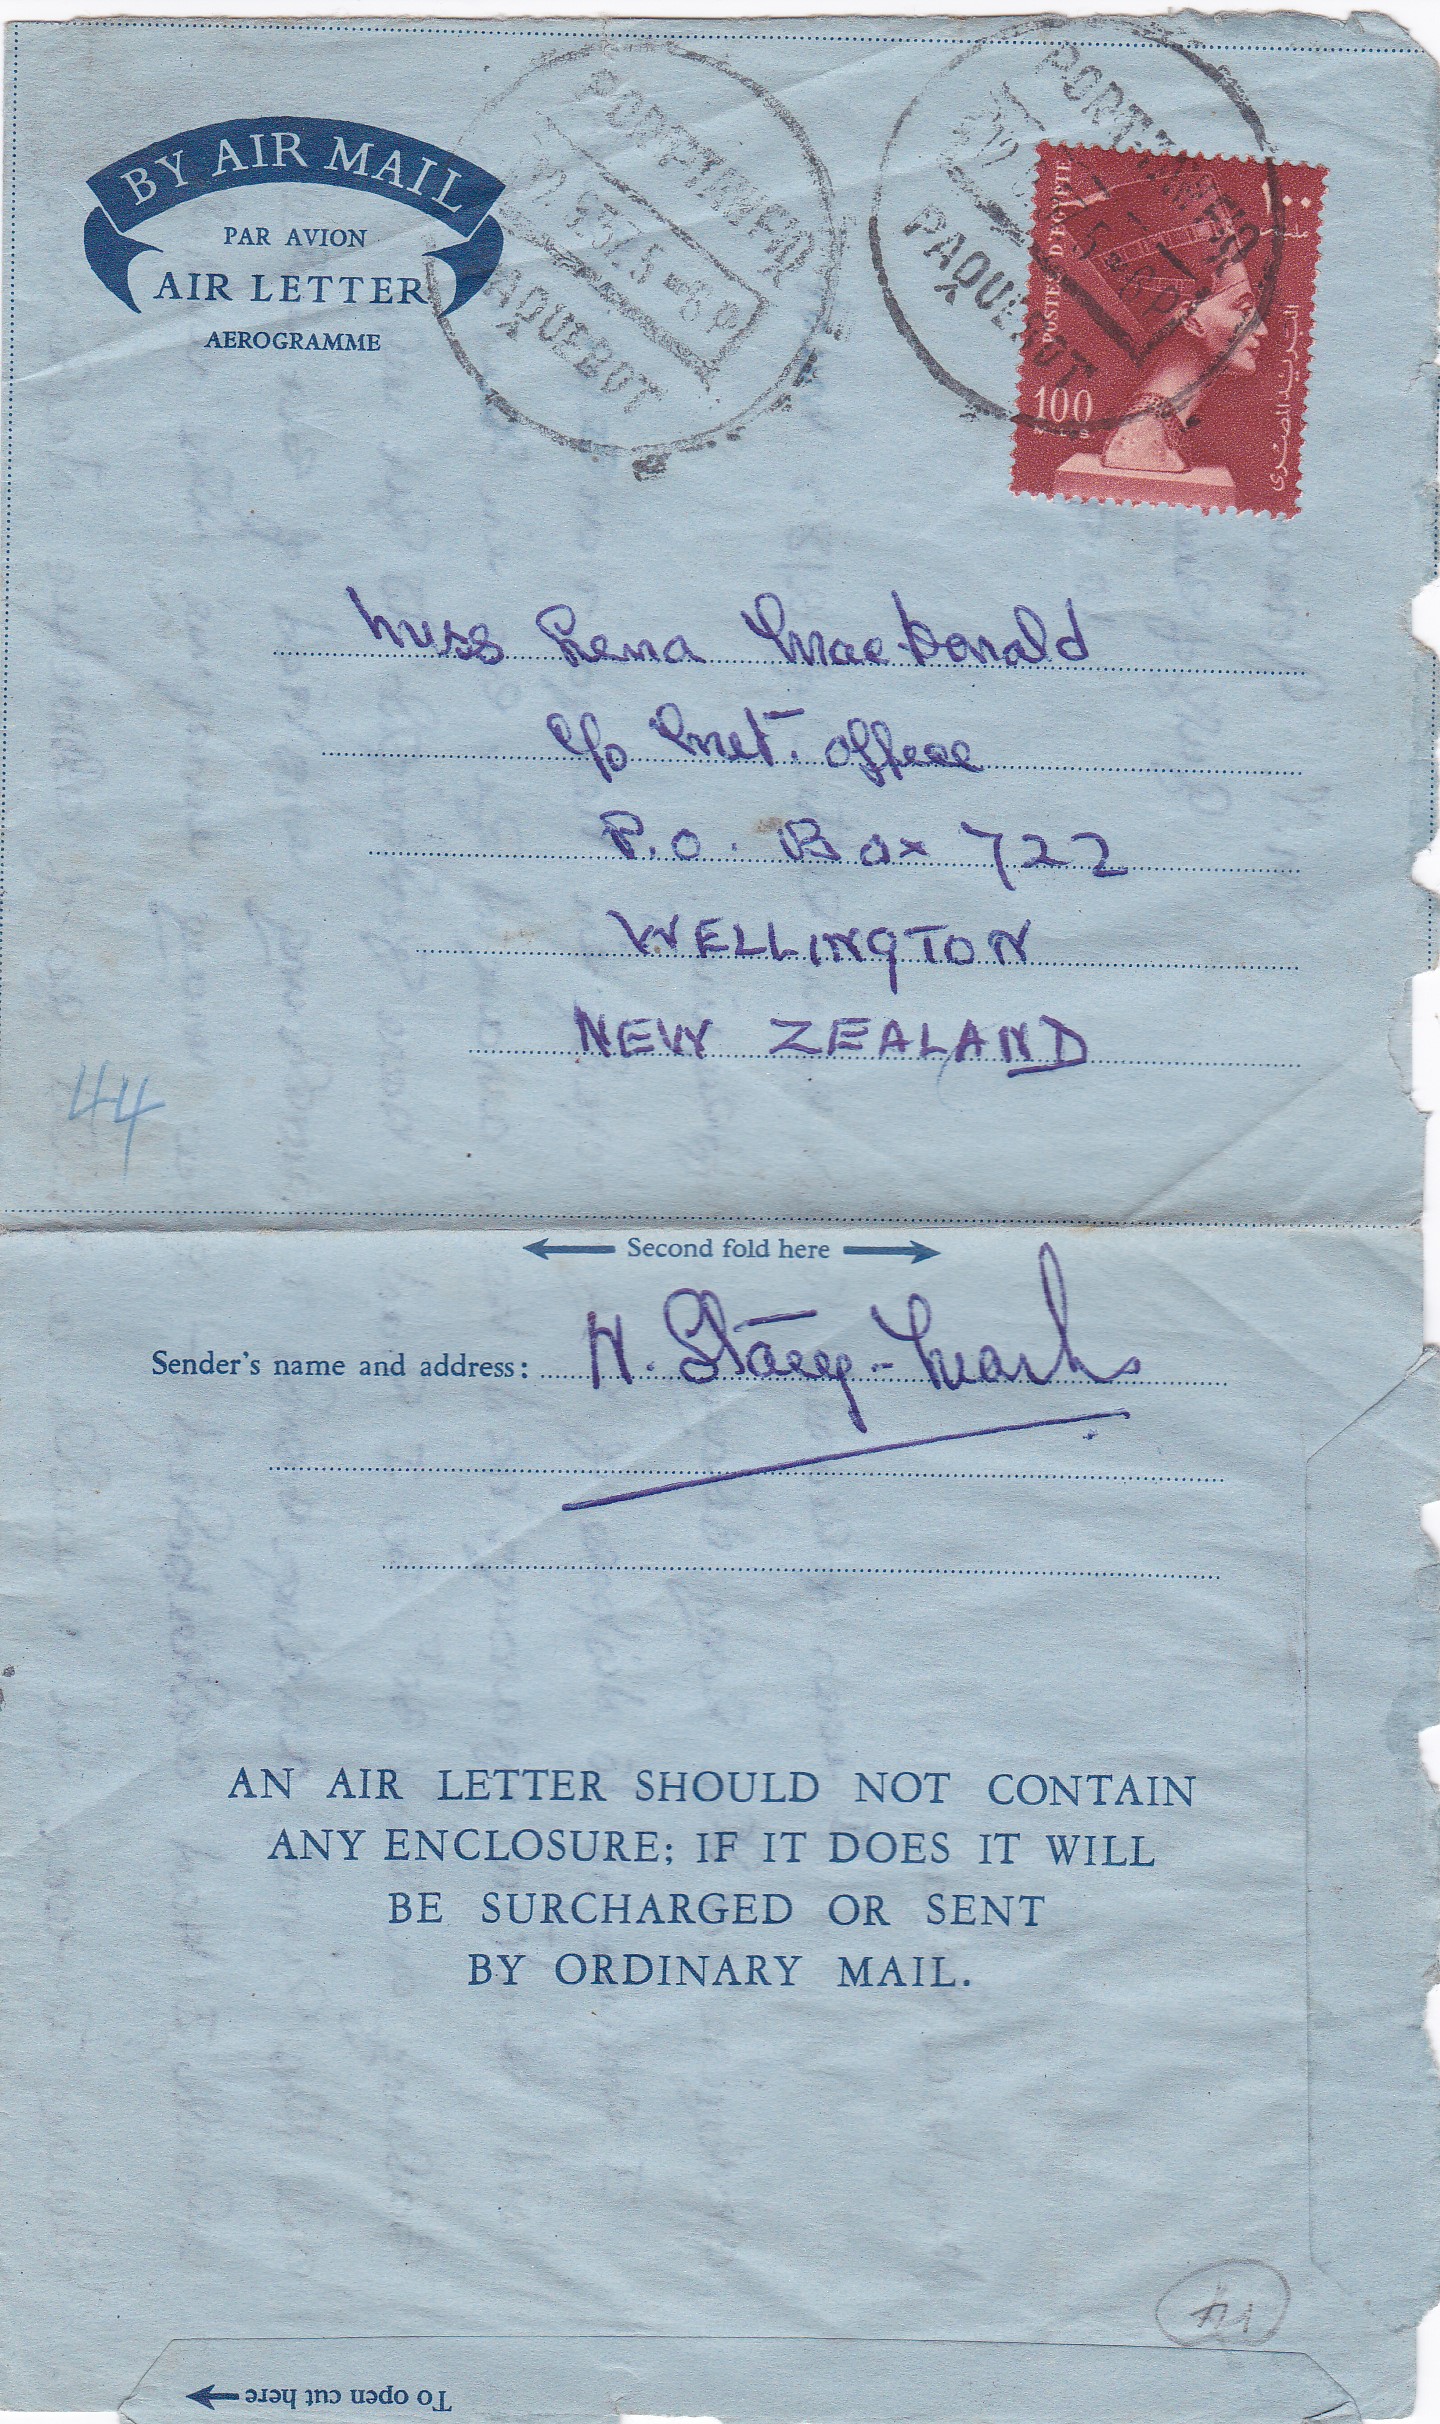 BY AIR MAIL
PAR AVION
AIR LETTER
AEROGRAMME
PORT TAWFIQ
PAQUEBOT
PORT TAWFIQ
PAQUEBOT
POSTES D'EGYPTE
١٠٠
مليم
البريد المصرى
100
MILLS
Miss Rena MacDonald
c/o Met. Office
P.O. Box 722
WELLINGTON
NEW ZEALAND
44
Second fold here
Sender's name and address: H. Stacey-Marks
AN AIR LETTER SHOULD NOT CONTAIN
ANY ENCLOSURE; IF IT DOES IT WILL
BE SURCHARGED OR SENT
BY ORDINARY MAIL.
To open cut here